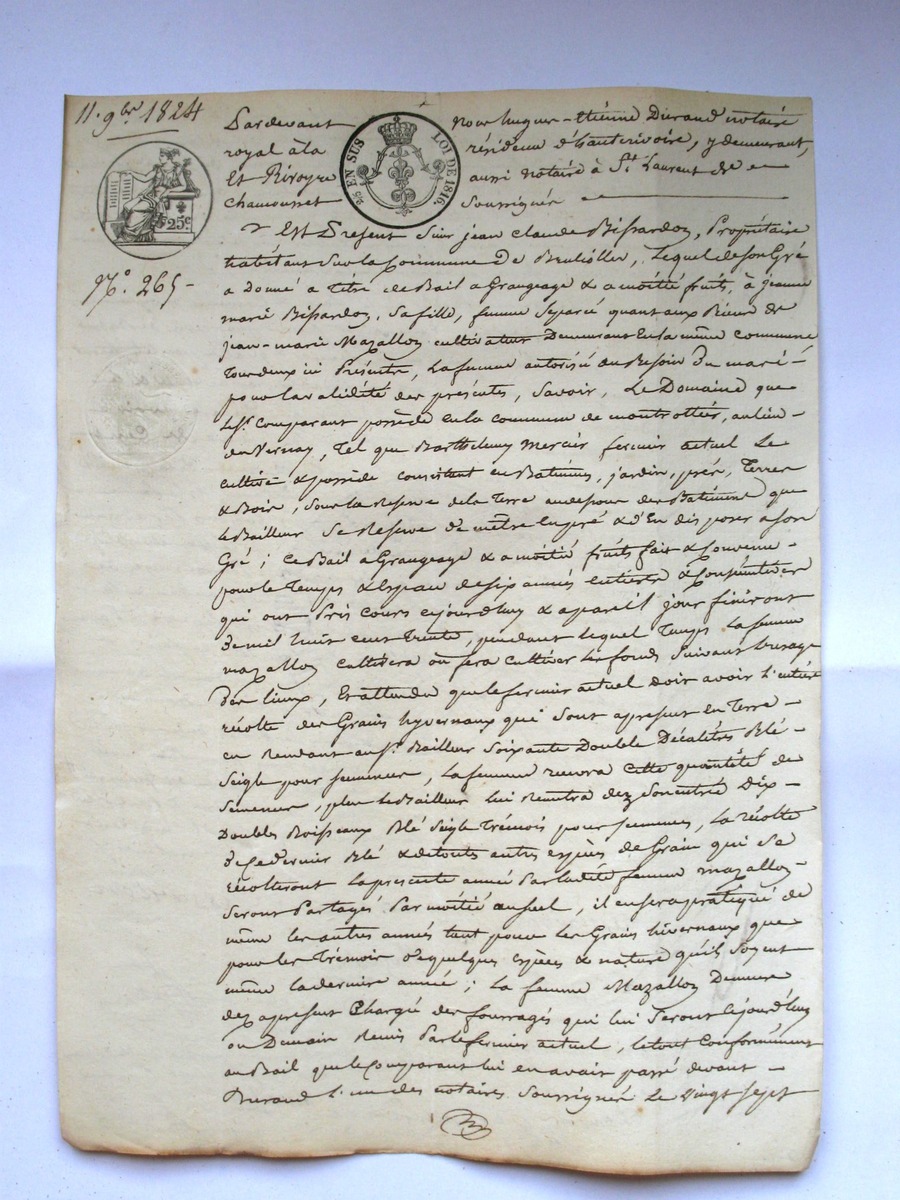 11. 9bre 1824
Pardevant nous hugues-étienne Durand notaire
royal à la résidence d'hauterivoire, y demeurant,
Et Rivoyre aussi notaire à St Laurent de
Chamousset Soussignés
25c. EN SUS LOI DE 1816.
25c.
No. 265
Est Présent Sieur jean Claude Bissardon, Propriétaire
habitant Sur la Commune De Brullioles, Lequel de son Gré
a Donné a titre de Bail a Grangeage & a moitié fruits, à jeanne
marie Bissardon, Sa fille, femme Séparée quant aux Biens de
jean-marie Mazallon cultivateur Demeurant En la même commune
Tous deux ici Présents, La femme autorisée au Besoin Du mari
pour la validité des présentes, Savoir, Le Domaine que
le Sr. Comparant possède en la commune de montrottier, au lieu
du Vernay, Tel que Barthélemy Mercier fermier actuel Le
cultive & possède consistant en Batiments, jardin, prés, Terres
& Bois, Sous la Reserve de la Terre au dessous des Batiments que
le Bailleur Se Reserve De mettre En pré & d'En disposer a son
Gré; ce Bail a Grangeage & a moitié fruits fait & Convenu
pour le Temps & Espace de six années entières & Consécutives
qui ont Pris cours cejourd'huy & a pareil jour finiront
De mil huit cent Trente, pendant lequel Temps La femme
mazallon cultivera où fera cultiver les fonds Suivant L'usage
Des lieux, Et attendu que le fermier actuel doit avoir l'entière
récolte des Grains hyvernaux qui Sont apresent en Terre
en Rendant au Sr. Bailleur Soixante Double Décalitres Blé
Seigle pour semences, La femme recevra cette quantité de
Semences, plus le Bailleur lui Remettra dez Son entrée Dix
Doubles Boisseaux Blé Seigle Trémois pour Semences, La récolte
de ce dernier Blé & de toutes autres espèces de Grain qui Se
récolteront La presente année Par ladite femme mazallon
Seront Partagés Par moitié au Seul, il en sera pratiqué de
même les autres années tant pour les Grains hivernaux que
pour les Trémois de quelques espèces & nature qu'ils Soyent
même la dernière année; La femme Mazallon Demeure
dez apresent Chargée des fourrages qui lui Seront Cejourd'huy
ou Demain Remis Par le fermier actuel, le tout Conformément
au Bail que le Comparant lui en avait passé devant
Durand l'un des notaires Soussignés Le Vingt Sept